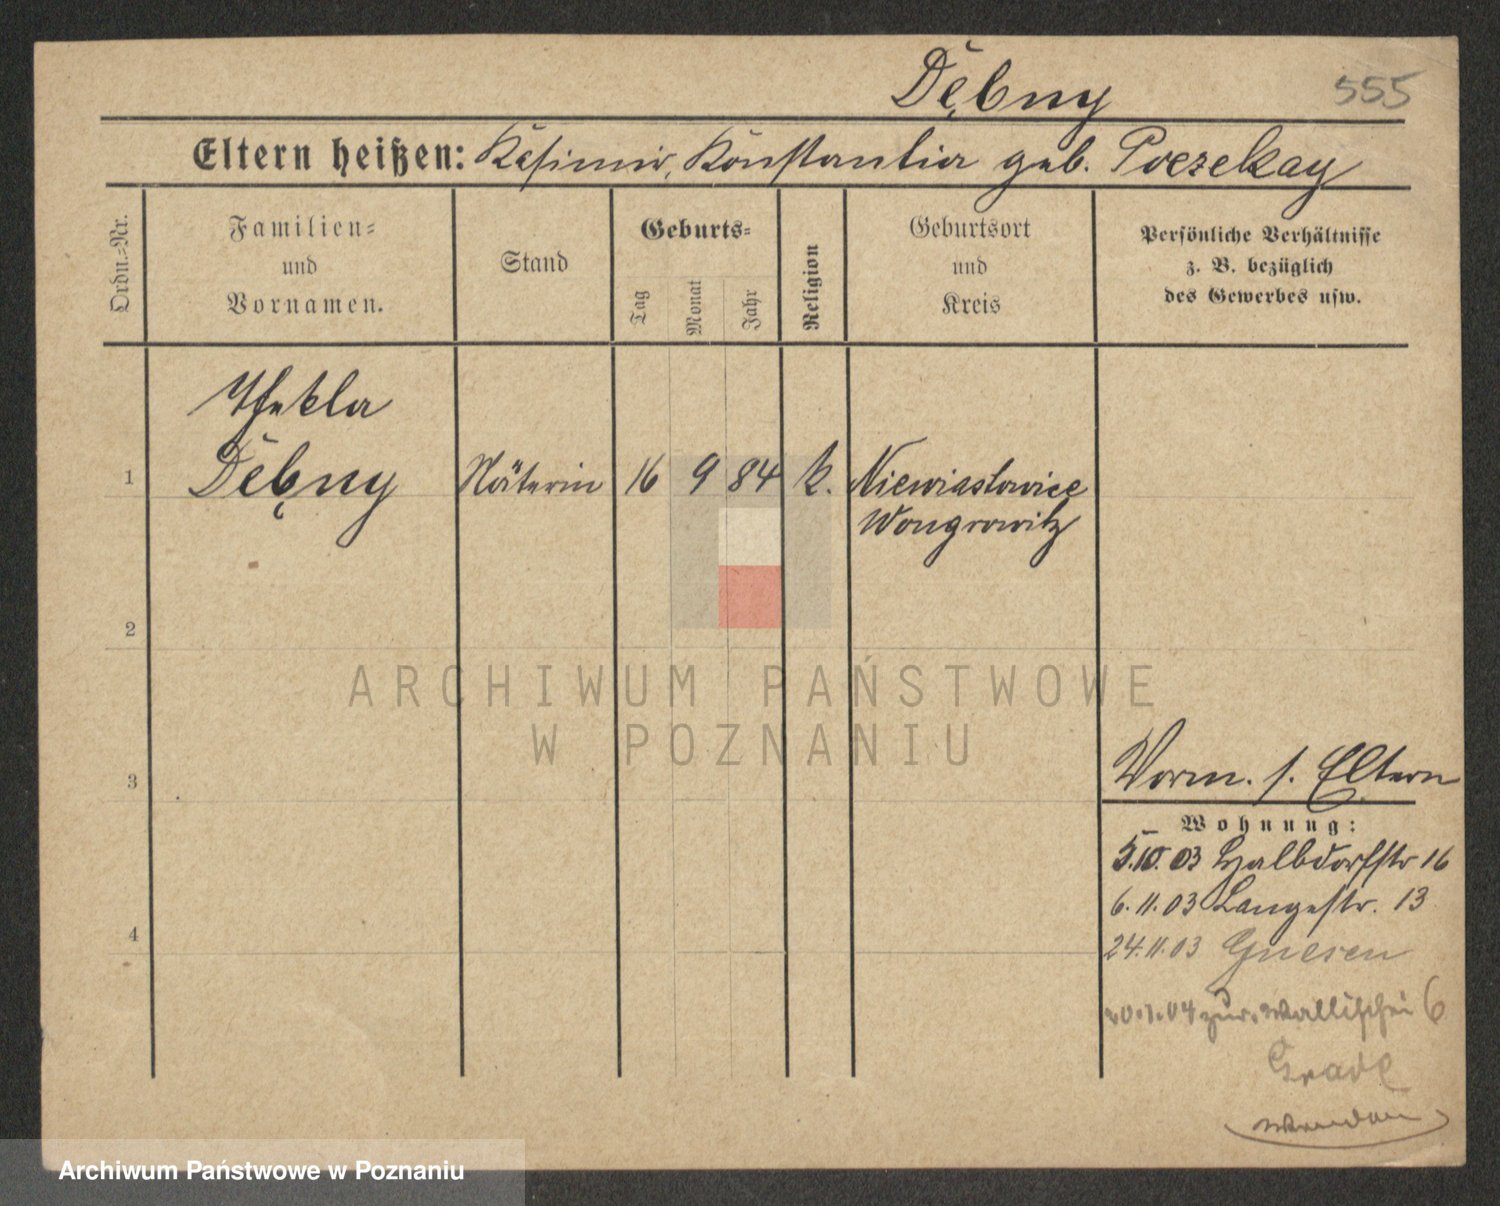 Dębny 555
Eltern heißen: Kasimir, Konstantia geb. Poczekay
Ordn.-Nr.
Familien-
und
Vornamen.
Stand
Geburts-
Tag
Monat
Jahr
Religion
Geburtsort
und
Kreis
Persönliche Verhältnisse
z. B. bezüglich
des Gewerbes usw.
Thekla
1 Dębny Näterin 16 9 84 k. Niewiastowice
Wongrowitz
2
ARCHIWUM PAŃSTWOWE
W POZNANIU
3
Vorm. s. Eltern
Wohnung:
5.10.03 Halbdorfstr 16
6.11.03 Langestr. 13
4
24.11.03 Gnesen
20.1.04 zur. Wallischei 6
Archiwum Państwowe w Poznaniu